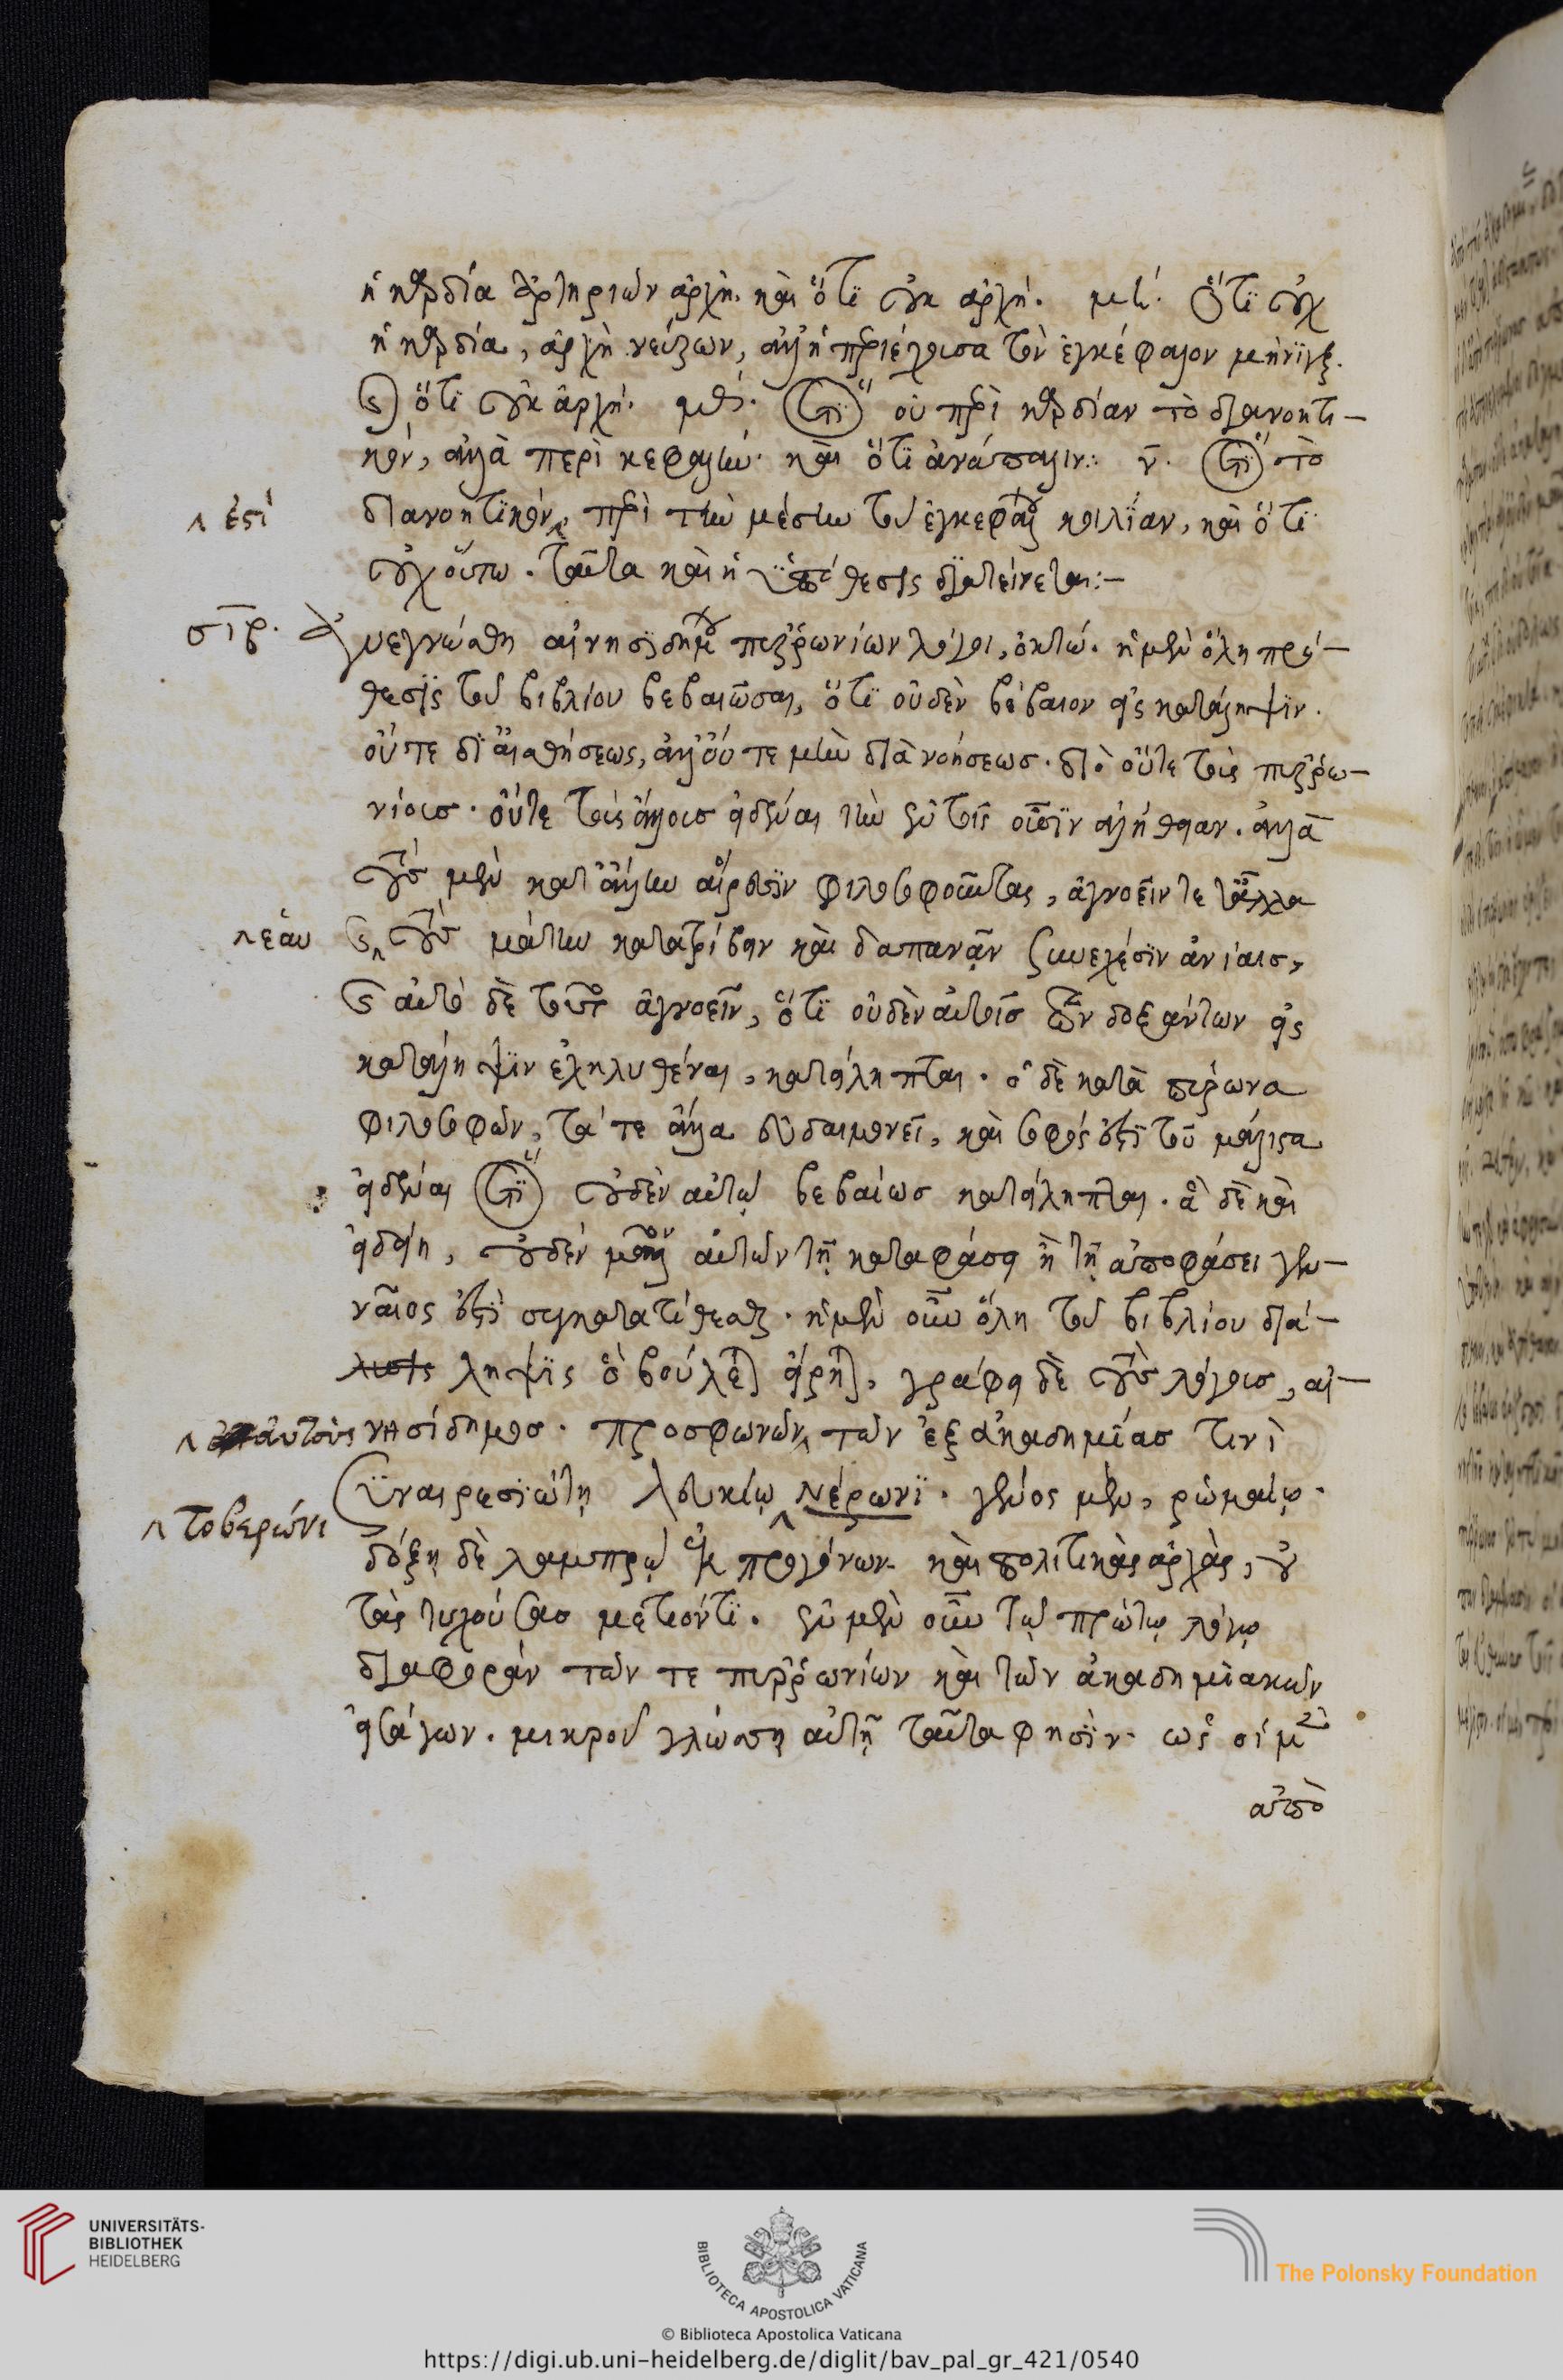 ἡ καρδία ἀρτηριῶν ἀρχή. καὶ ὅτι οὐκ ἀρχή. μη΄. ὅτι οὐχ
ἡ καρδία, ἀρχὴ νεύρων, ἀλλ' ἡ περιέχουσα τὸν ἐγκέφαλον μήνιγξ.
καὶ ὅτι οὐκ ἀρχή. μθ΄. ὅτι οὐ περὶ καρδίαν τὸ διανοητι-
κόν, ἀλλὰ περὶ κεφαλήν. καὶ ὅτι ἀνάπαλιν: ν. ὅτι τὸ
^ ἐστὶ διανοητικόν^, περὶ τὴν μέσην τοῦ ἐγκεφάλου κοιλίαν, καὶ ὅτι
οὐχ οὕτω. ταῦτα καὶ ἡ ὑπόθεσις διατείνεται:-
σιβ. ἀνεγνώσθη αἰνησιδήμου πυῤῥωνίων λόγοι, ὀκτώ. ἡ μὲν ὅλη πρό-
θεσις τοῦ βιβλίου βεβαιῶσαι, ὅτι οὐδὲν βέβαιον εἰς κατάληψιν.
οὔτε δι' αἰσθήσεως, ἀλλ' οὔτε μὴν διὰ νοήσεως. διὸ οὔτε τοὺς πυῤῥω-
νίους. οὔτε τοὺς ἄλλους εἰδέναι τὴν ἐν τοῖς οὖσιν ἀλήθειαν. ἀλλὰ
τοὺς μὲν κατ' ἄλλην αἵρεσιν φιλοσοφοῦντας, ἀγνοεῖν τε τἄλλα
^ ἑαυ καὶ ^ τοὺς μάτην κατατρίβειν καὶ δαπανᾶν συνεχέσιν ἀνίαις,
καὶ αὐτὸ δὲ τοῦτο ἀγνοεῖν, ὅτι οὐδὲν αὐτοῖς τῶν δοξάντων εἰς
κατάληψιν ἐληλυθέναι, κατείληπται. ὁ δὲ κατὰ πύρωνα
φιλοσοφῶν, τά τε ἄλλα εὐδαιμονεῖ, καὶ σοφός ἐστι τοῦ μάλιστα
εἰδέναι ὅτι οὐδὲν αὐτῷ βεβαίως κατείληπται. ἃ δὲ καὶ
εἰδείη, οὐδὲν μᾶλλον αὐτῶν τῇ καταφάσει ἢ τῇ ἀποφάσει γεν-
ναῖος ἐστὶ συγκατατίθεσθαι. ἡ μὲν οὖν ὅλη τοῦ βιβλίου διά-
ληψις ὃ βούλεται εἴρηται, γράφει δὲ τοὺς λόγους, αἰ-
^ αὐτοὺς νησίδημος. προσφωνῶν^ τῶν ἐξ ἀκαδημίας τινὶ
συναιρεσιώτῃ λευκίῳ ^ Νέρωνι. γένος μὲν, ῥωμαίῳ.
^ τοβερώνι
δόξῃ δὲ λαμπρῷ ἐκ προγόνων. καὶ πολιτικὰς ἀρχὰς, οὐ
τὰς τυχούσας μετιόντι. ἐν μὲν οὖν τῷ πρώτῳ λόγῳ
διαφορὰν τῶν τε πυῤῥωνίων καὶ τῶν ἀκαδημιακῶν
εἰσάγων. μικροῦ γλώσσῃ αὐτῇ ταῦτα φησίν. ὡς οἱ μὲν
ἀπὸ
UNIVERSITÄTS-
BIBLIOTHEK
HEIDELBERG
BIBLIOTECA APOSTOLICA VATICANA
The Polonsky Foundation
© Biblioteca Apostolica Vaticana
https://digi.ub.uni-heidelberg.de/diglit/bav_pal_gr_421/0540